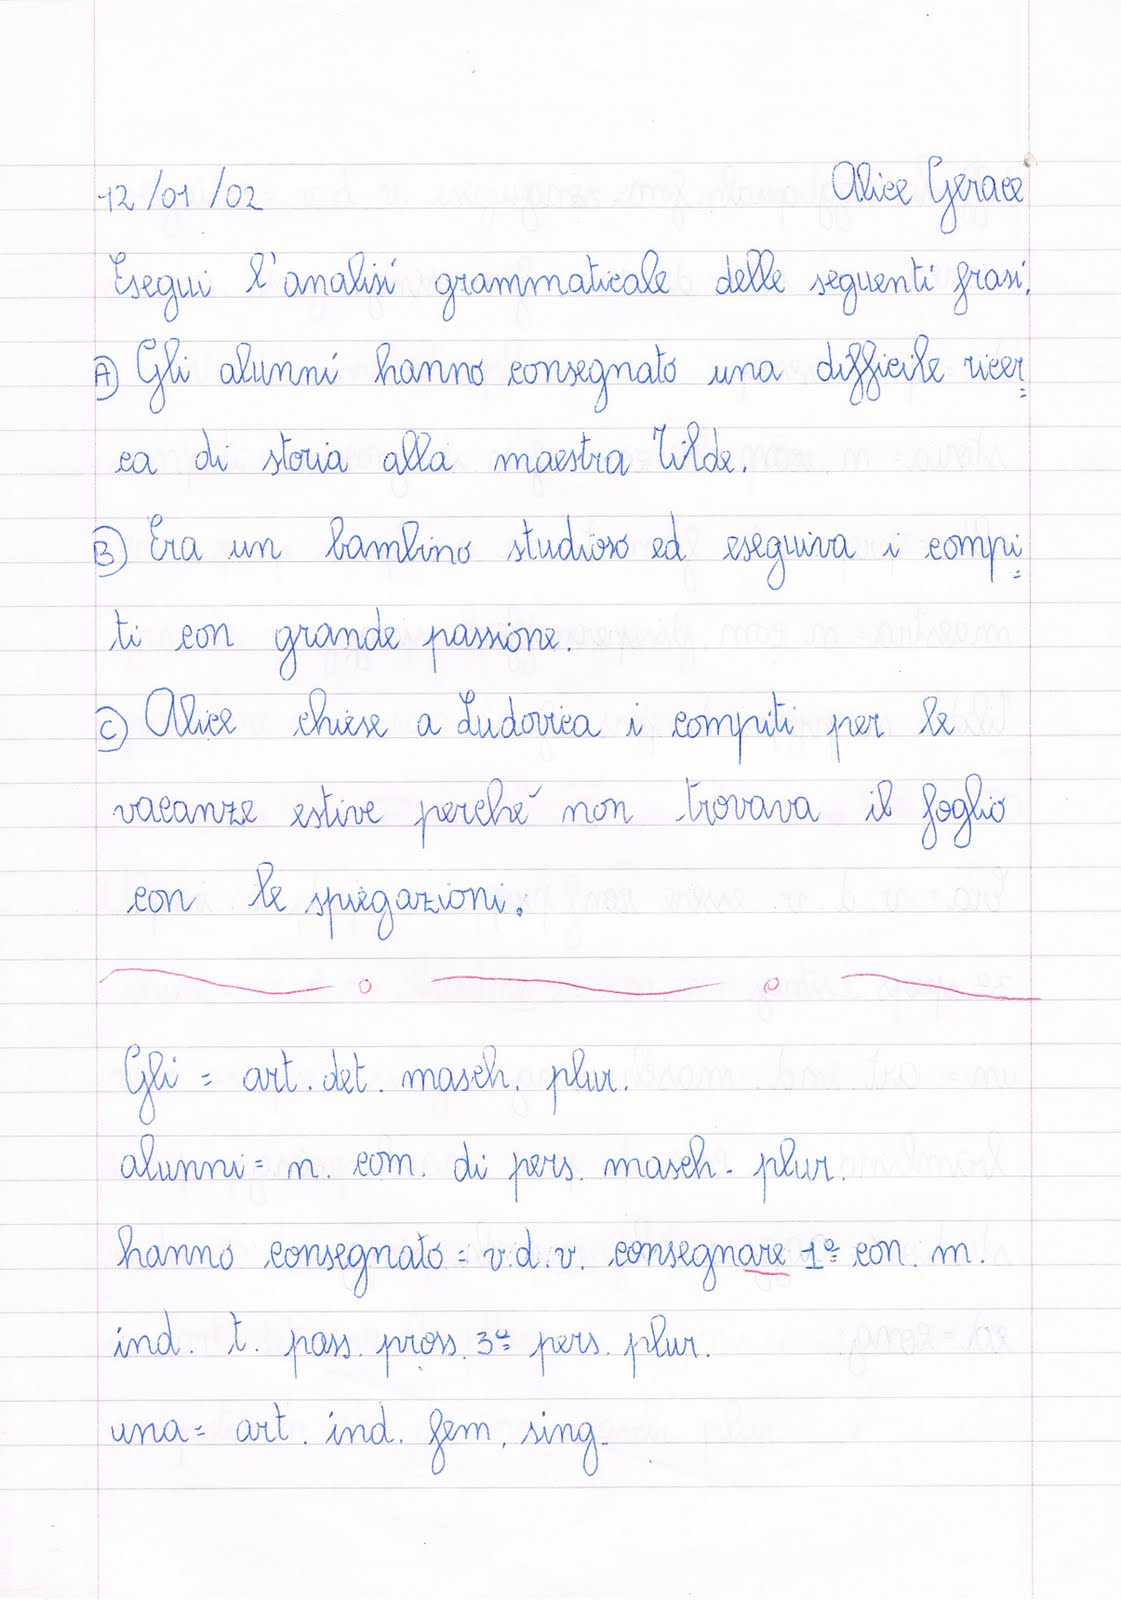 12/01/02 Alice Gerace
Esegui l'analisi grammaticale delle seguenti frasi.
A) Gli alunni hanno consegnato una difficile ricer=
ca di storia alla maestra Tilde.
B) Era un bambino studioso ed eseguiva i compi=
ti con grande passione.
C) Alice chiese a Ludovica i compiti per le
vacanze estive perché non trovava il foglio
con le spiegazioni.
Gli = art. det. masch. plur.
alunni = n. com. di pers. masch. plur.
hanno consegnato = v. d. v. consegnare 1ª con. m.
ind. t. pass. pross. 3ª pers. plur.
una = art. ind. fem. sing.